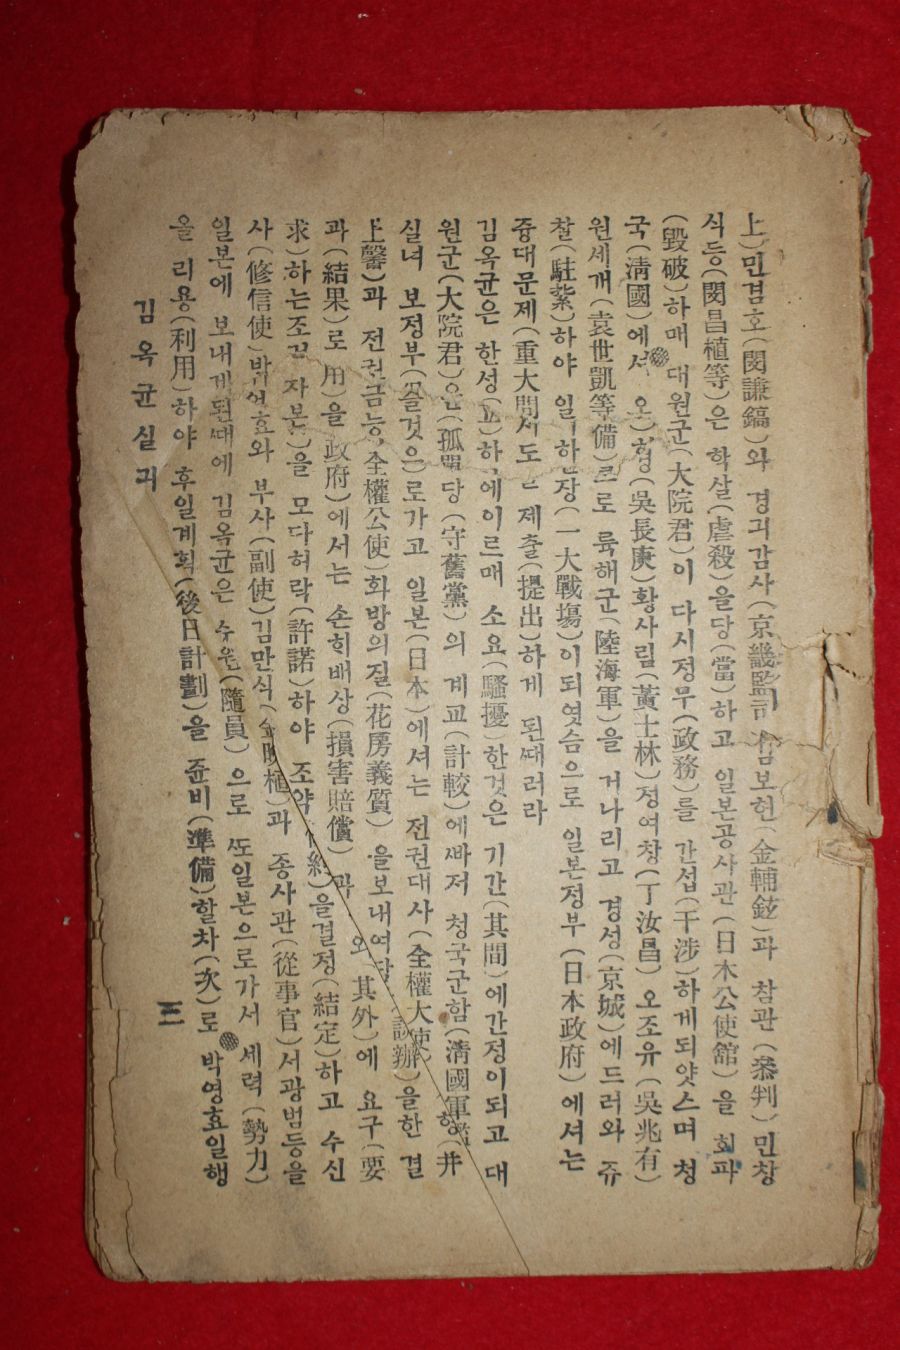 上)민겸호(閔謙鎬)와 경긔감사(京畿監司 김보헌(金輔鉉)과 참관(叅判)민창
식등(閔昌植等)은 학살(虐殺)을당(當)하고 일본공사관(日本公使館)을 회파
(毁破)하매 대원군(大院君)이 다시정무(政務)를 간섭(干涉)하게되얏스며 청
국(淸國)에서 오 형(吳長庚)황사림(黃士林)정여창(丁汝昌)오조유(吳兆有)
원세개(袁世凱等 備)로 륙해군(陸海軍)을 거나리고 경성(京城)에드러와 쥬
찰(駐紮)하야 일 장(一大戰塲)이되엿슴으로 일본정부(日本政府)에셔는
즁대문제(重大問 도 제출(提出)하게 된때러라
김옥균은 한성( 하 에이르매 소요(騷擾)한것은 기간(其間)에간정이되고 대
원군(大院君)은(孤 당(守舊黨)의 계교(計較)에빠저 청국군함(淸國軍艦
실녀 보정부( 것으로가고 일본(日本)에셔는 전권대사(全權大使 (井
上馨)과 전권 全權公使)화방의질(花房義質)을보내여 談辦)을한 결
과(結果)로 用)을政府)에서는 손희배상(損害賠償)과 와 其外)에 요구(要
求)하는조건 자본 을 모다허락(許諾)하야 조약 約)을결정(結定)하고 수신
사(修信使)박영효와 부사(副使)김만식(金晩植)과 종사관(從事官)서광범등을
일본에 보내게된때에 김옥균은 수원(隨員)으로 또일본으로가서 세력(勢力)
을 리용(利用)하야 후일계획(後日計劃)을 쥰비(準備)할차(次)로 박영효일행
김옥균실긔
三